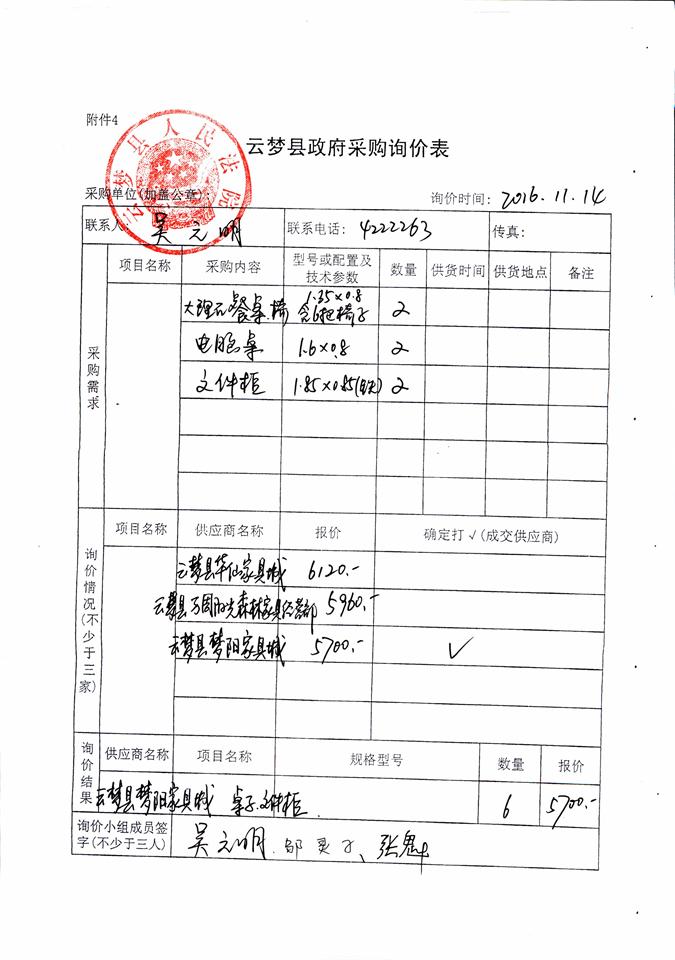 附件4
云梦县人民法院
云梦县政府采购询价表
采购单位(加盖公章): 询价时间: 2016.11.14
联系人: 吴元明 联系电话: 4222263 传真:
采购需求
项目名称 采购内容 型号或配置及技术参数 数量 供货时间 供货地点 备注
大理石餐桌.椅 1.35×0.8 含6把椅子 2
电脑桌 1.6×0.8 2
文件柜 1.85×0.85 2
询价情况(不少于三家)
项目名称 供应商名称 报价 确定打√(成交供应商)
云梦县华仙家具城 6120.-
云梦县 阳光森林家具经营部 5960.-
云梦县梦阳家具城 5700.- √
询价结果
供应商名称 项目名称 规格型号 数量 报价
云梦县梦阳家具城 桌子.文件柜 6 5700.-
询价小组成员签字(不少于三人) 吴元明. 张魁